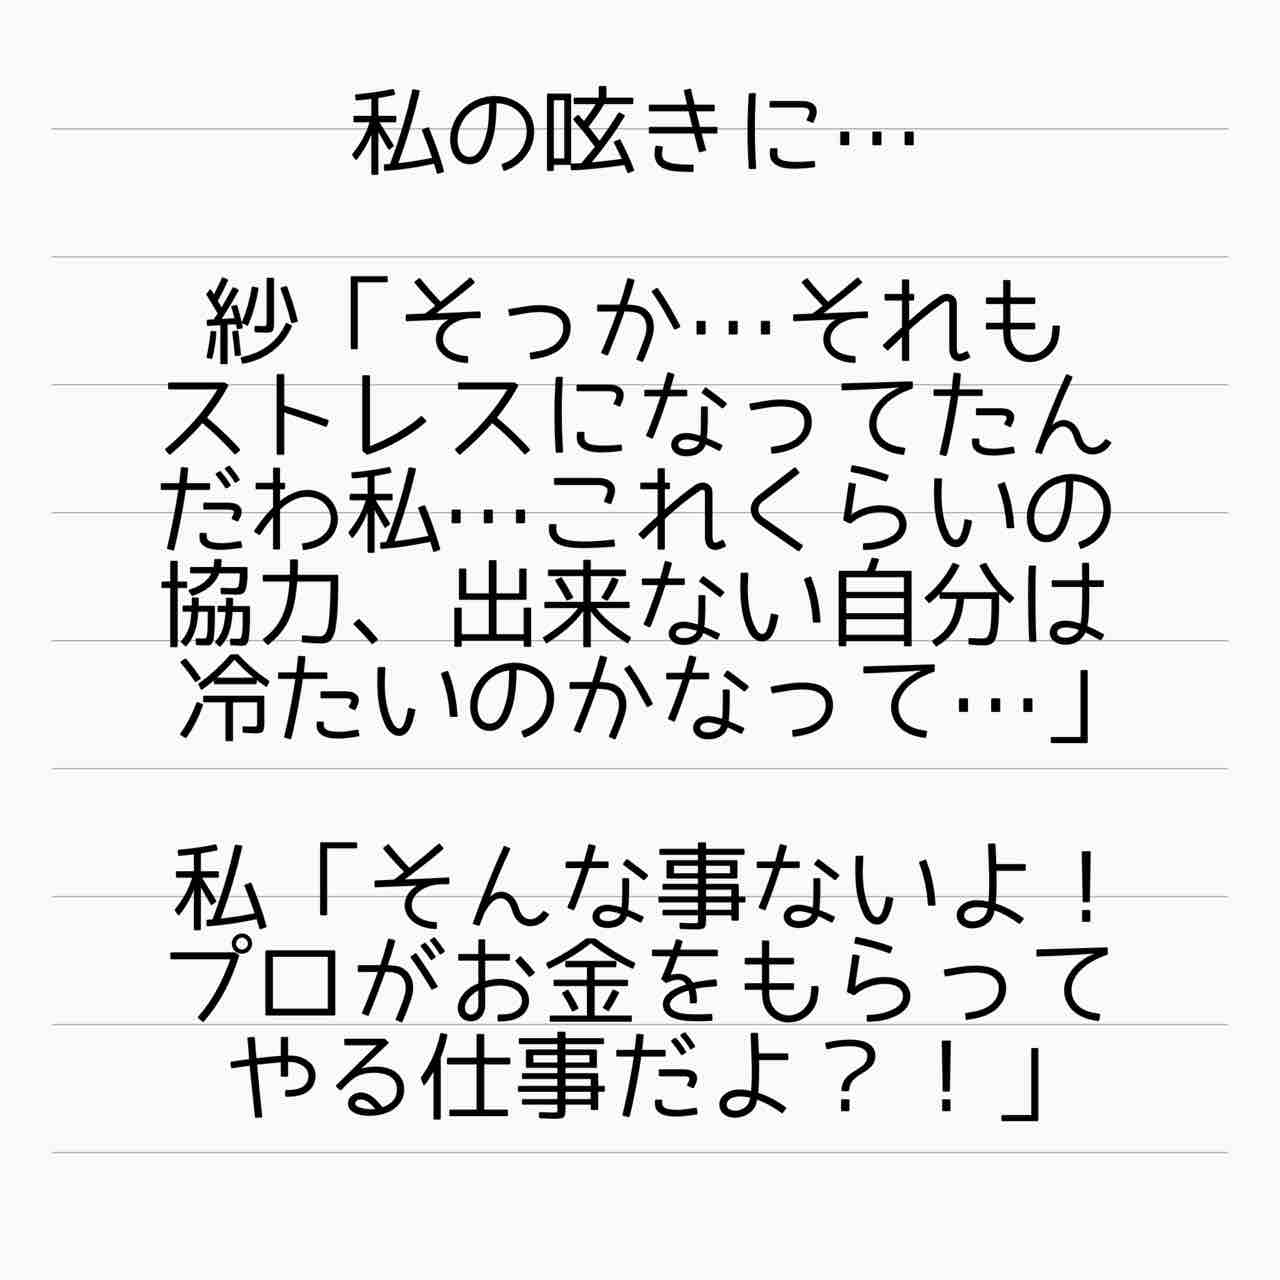 私の呟きに…
紗「そっか…それも
ストレスになってたん
だわ私…これくらいの
協力、出来ない自分は
冷たいのかなって…」
私「そんな事ないよ！
プロがお金をもらって
やる仕事だよ？！」